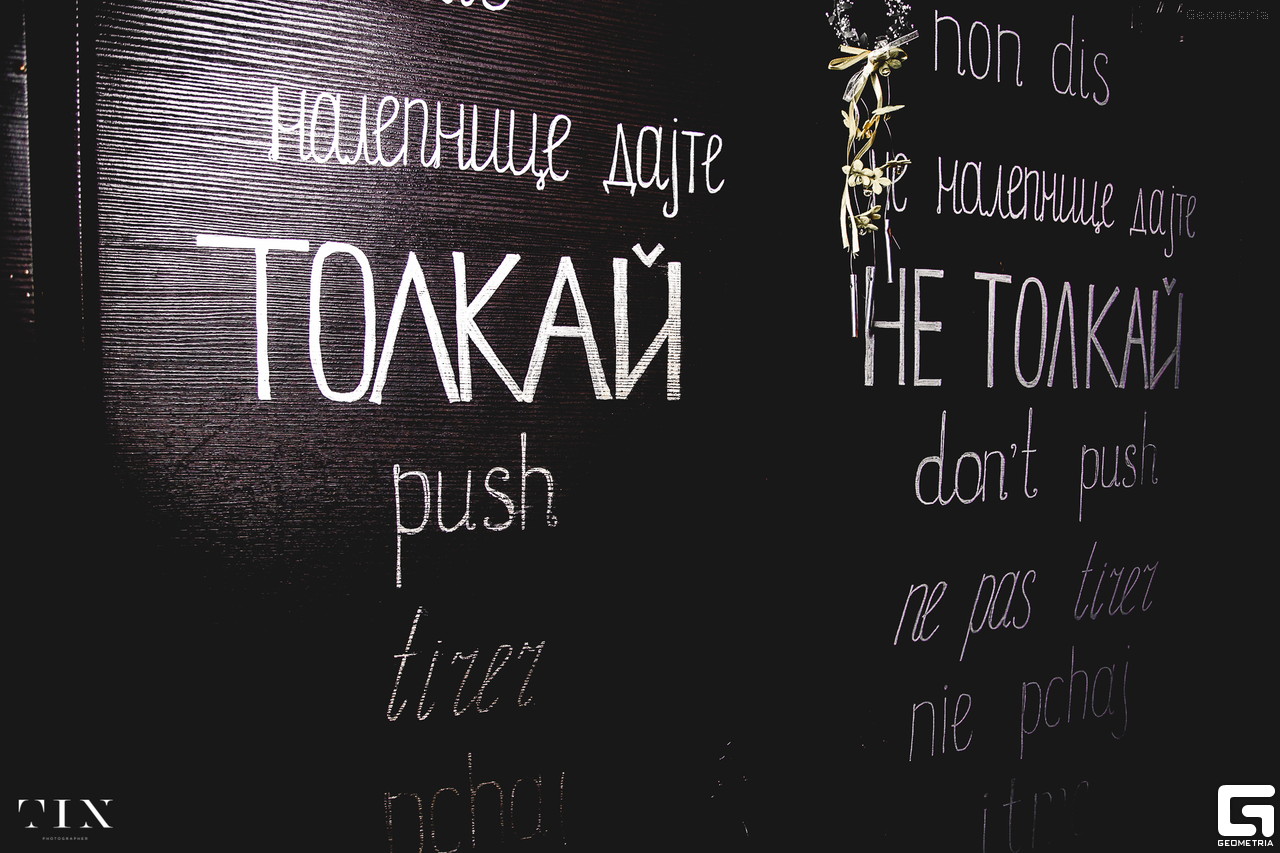 налепнице дајте
ТОЛКАЙ
push
tirer
pchaj
non dis
налепнице дајте
НЕ ТОЛКАЙ
don't push
ne pas tirer
nie pchaj
TIN
PHOTOGRAPHER
Geometria
GEOMETRIA